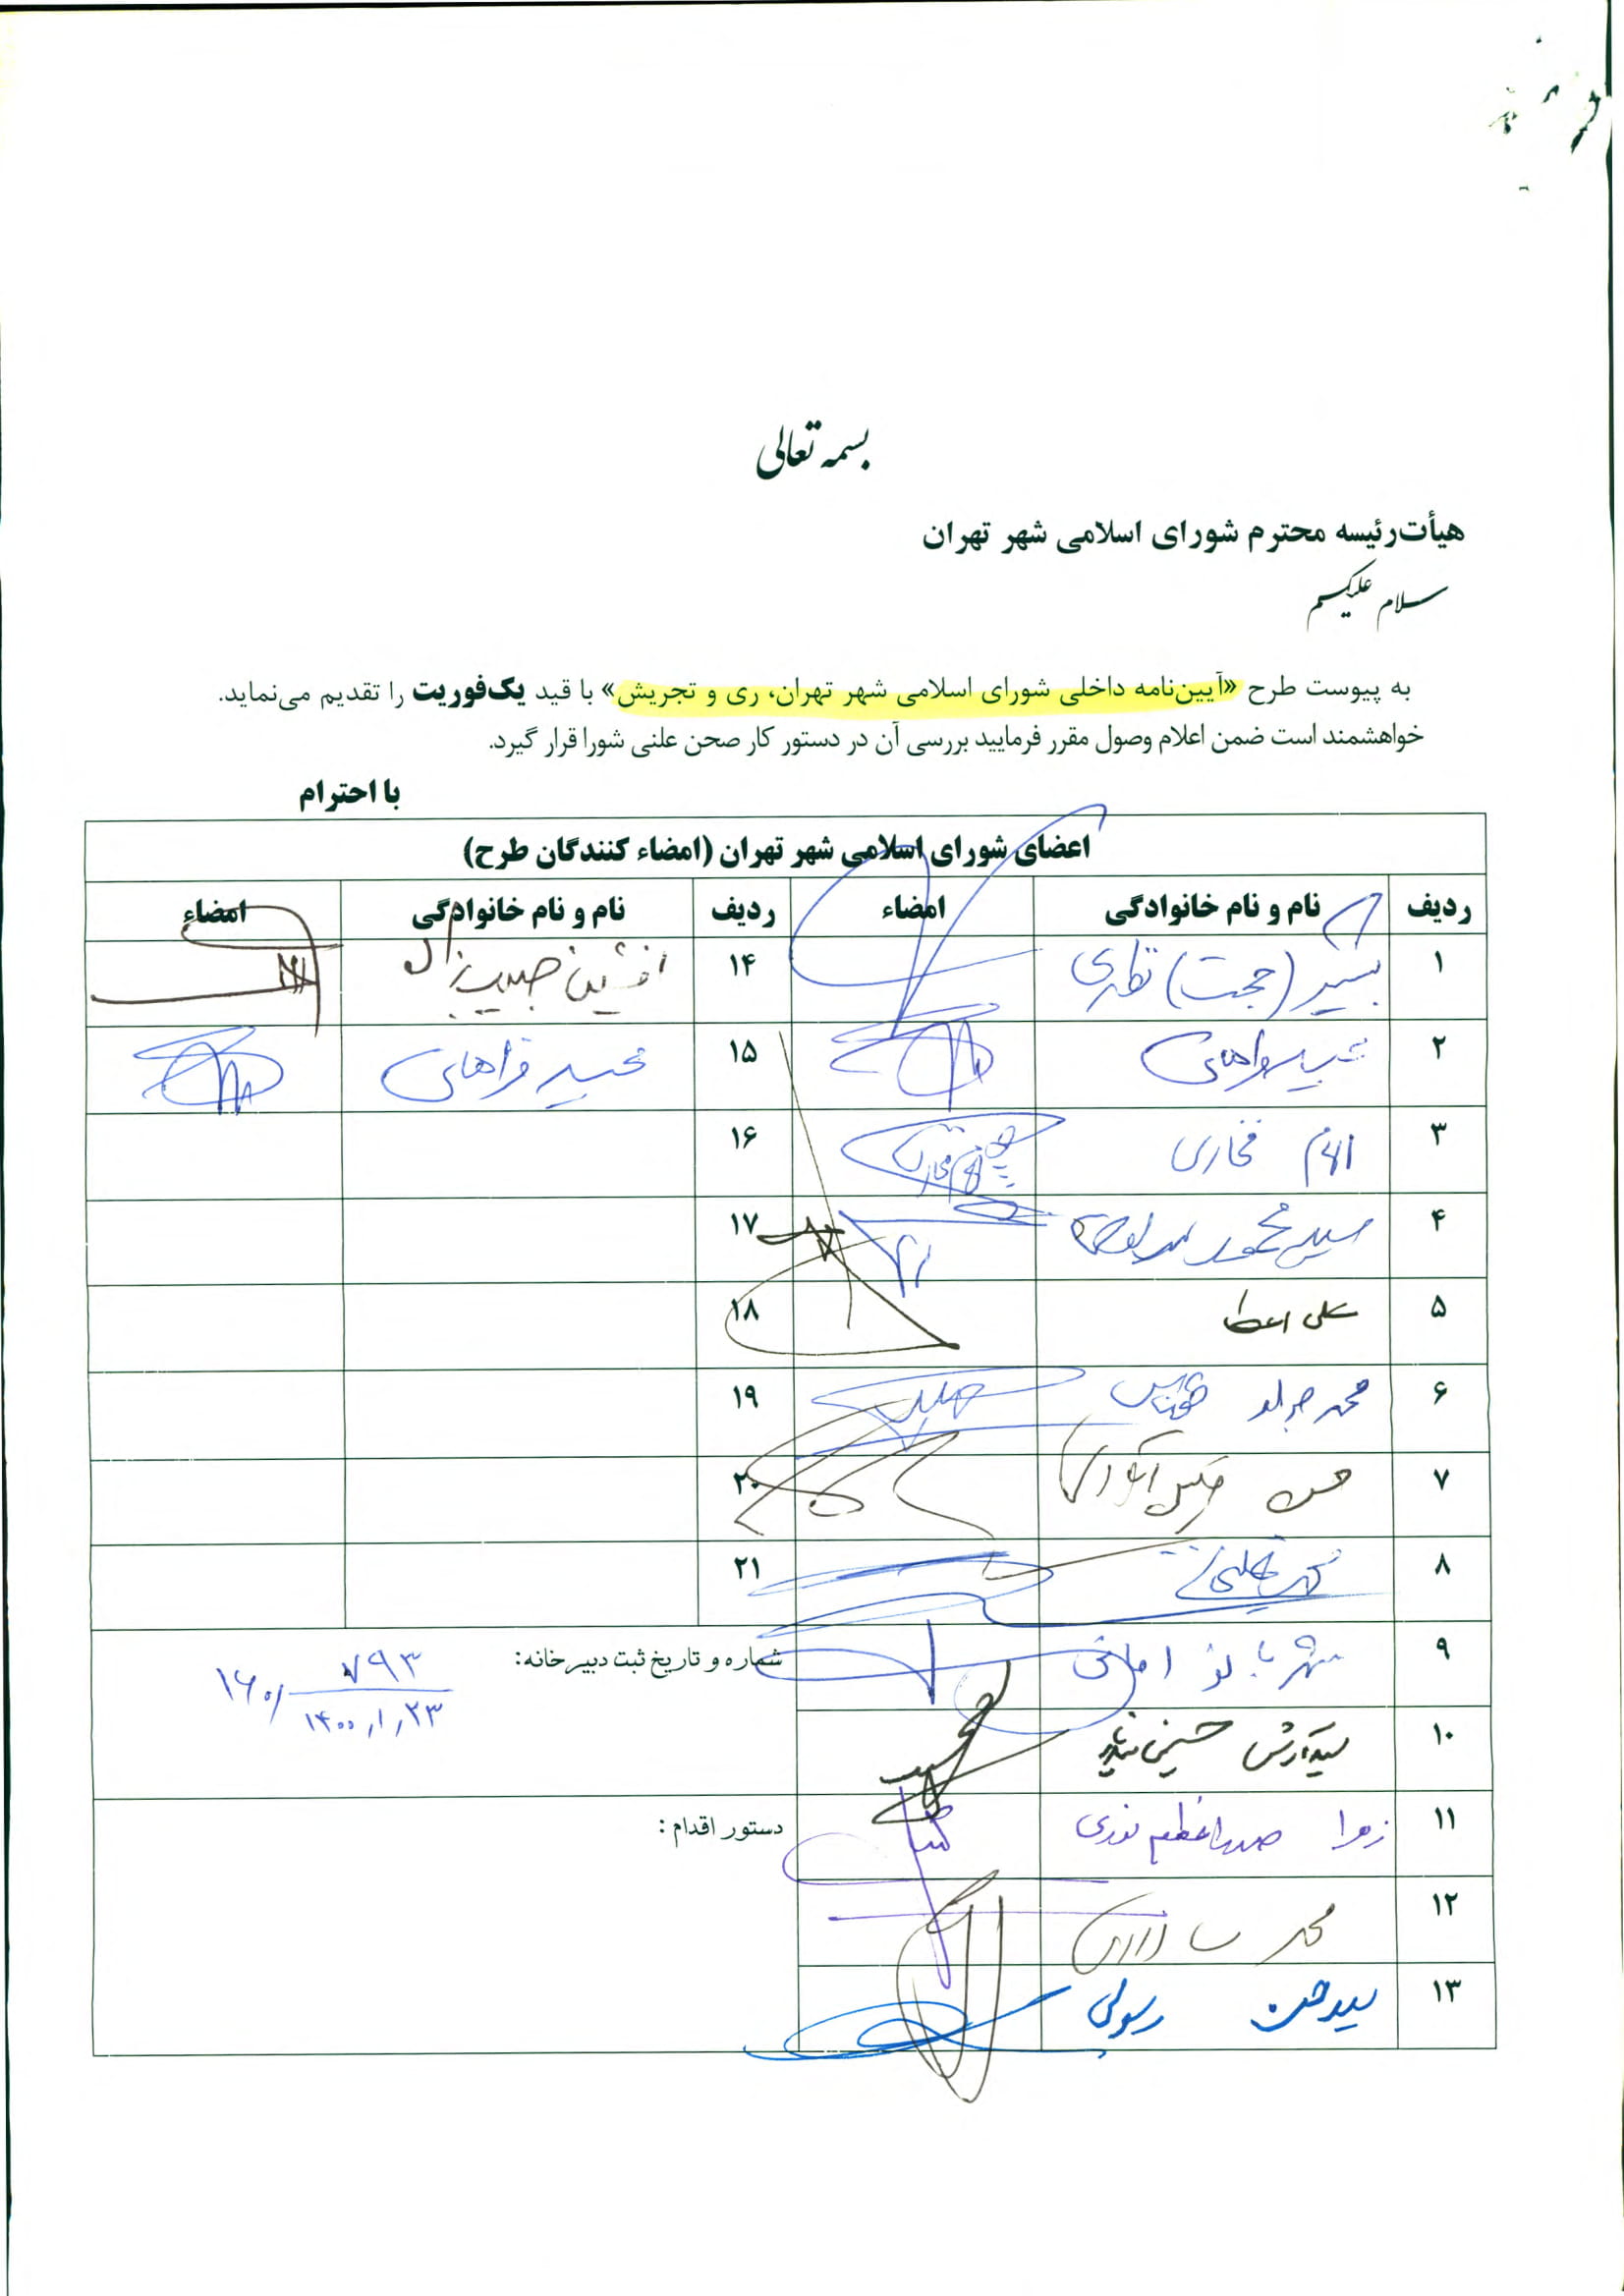 بسمه تعالی
هیأت‌رئیسه محترم شورای اسلامی شهر تهران
سلام علیکم
به پیوست طرح «آیین‌نامه داخلی شورای اسلامی شهر تهران، ری و تجریش» با قید یک‌فوریت را تقدیم می‌نماید.
خواهشمند است ضمن اعلام وصول مقرر فرمایید بررسی آن در دستور کار صحن علنی شورا قرار گیرد.
با احترام
اعضای شورای اسلامی شهر تهران (امضاء کنندگان طرح)
ردیف نام و نام خانوادگی امضاء ردیف نام و نام خانوادگی امضاء
۱ بشیر (حجت) نظری ۱۴ افشین حبیب زاده
۲ مجید فراهانی ۱۵ مجید فراهانی
۳ الهام فخاری ۱۶
۴ سید محمود میرلوحی ۱۷
۵ علی اعطا ۱۸
۶ محمد جواد حق شناس ۱۹
۷ حسن خلیل آبادی ۲۰
۸ ۲۱
۹ شهربانو امانی
شماره و تاریخ ثبت دبیرخانه: ۱۶۰/۷۹۳
۱۴۰۰/۱/۲۳
۱۰ سیدآرش حسینی میلانی
۱۱ زهرا صدراعظم نوری
دستور اقدام:
۱۲ محمد سالاری
۱۳ سید حسن رسولی